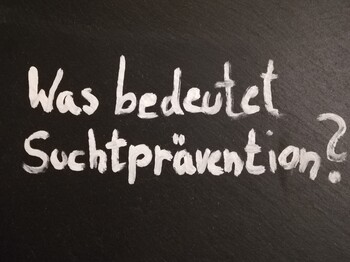 Was bedeutet
Suchtprävention?